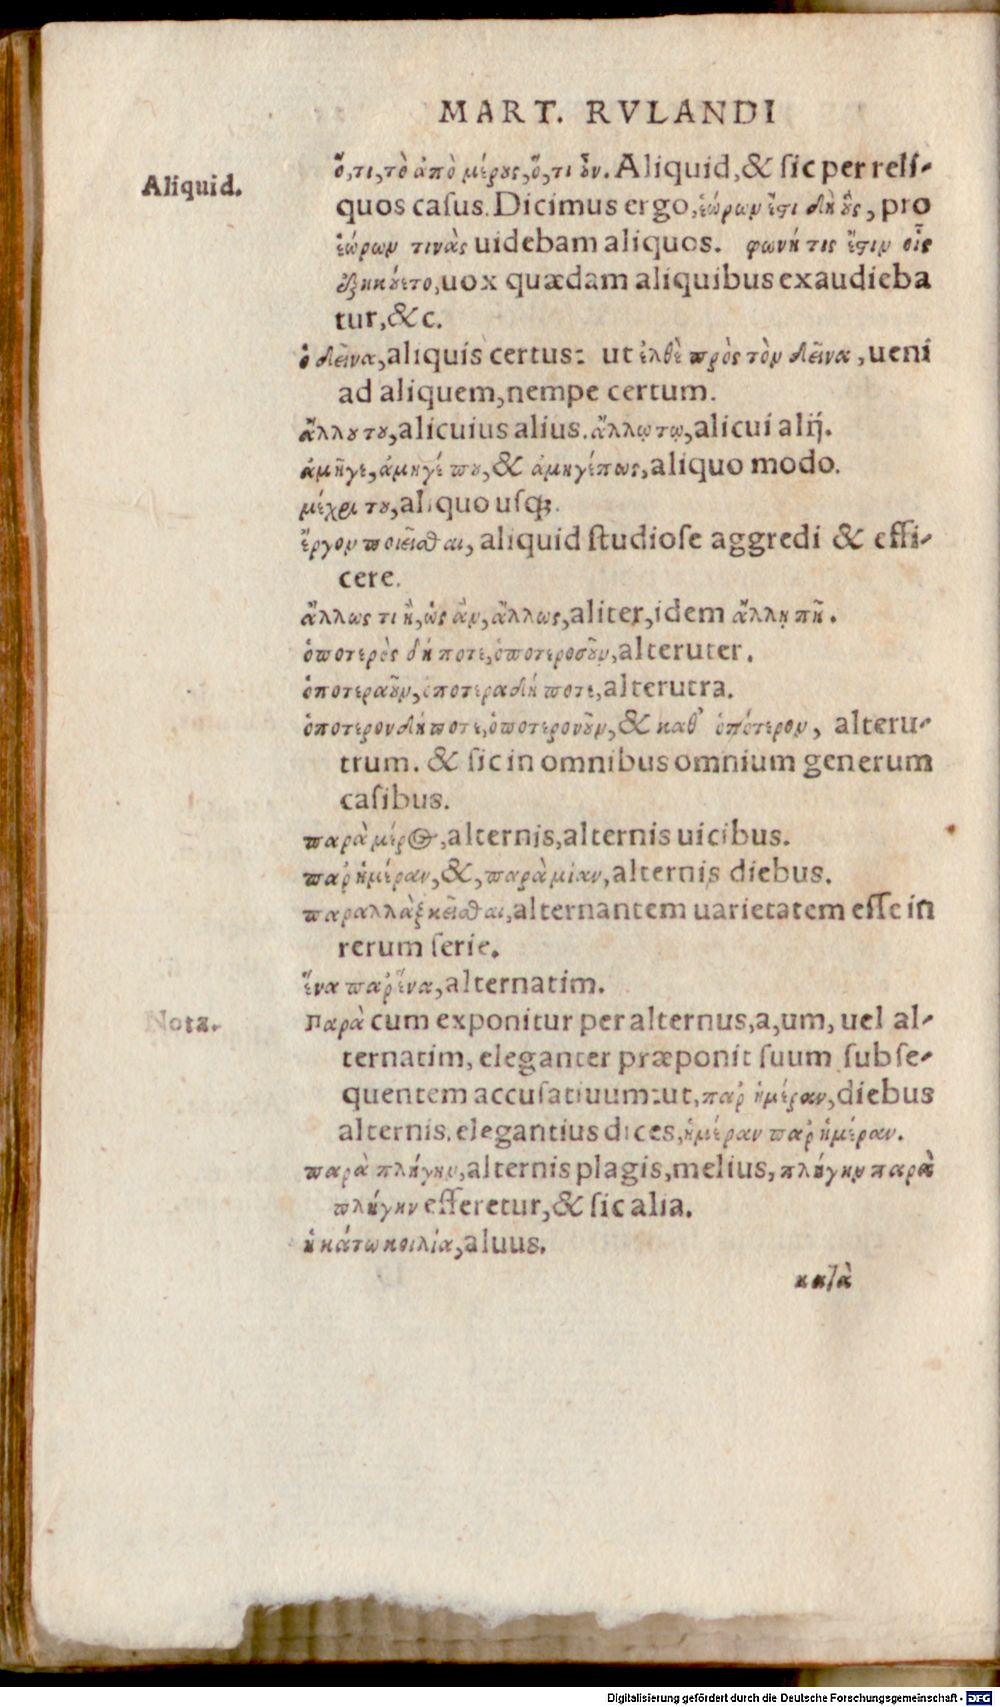 MART. RVLANDI
Aliquid.
ὅ,τι,τὸ ἀπὸ μέρους,ὅ,τι οὖν. Aliquid,& sic per reli-
quos casus. Dicimus ergo,ἑώρων ἔστι δὴ οὓς, pro
ἑώρων τινὰς uidebam aliquos. φωνή τις ἔστιν οἷς
ἐξηκούετο,uox quædam aliquibus exaudieba
tur,&c.
ὁ δεῖνα,aliquis certus: ut ἐλθὲ πρὸς τὸν δεῖνα,ueni
ad aliquem,nempe certum.
ἄλλου του,alicuius alius.ἄλλῳ τῳ,alicui alij.
ἀμῆγε,ἀμηγέ που,& ἀμηγέπως,aliquo modo.
μέχρι του,aliquo usq;.
ἔργον ποιεῖσθαι, aliquid studiose aggredi & effi-
cere.
ἄλλως τι ἢ,ὡς ἂν,ἄλλως,aliter,idem ἄλλῃ πῆ.
ὁποτερὸς δή ποτε,ὁποτεροσοῦν,alteruter.
ὁποτεραοῦν,ὁποτεραδήποτε,alterutra.
ὁποτερονδήποτε,ὁποτερονοῦν,& καθ' ὁπότερον, alteru-
trum. & sic in omnibus omnium generum
casibus.
παρὰ μέρος,alternis,alternis uicibus.
παρ' ἡμέραν,&,παρὰ μίαν,alternis diebus.
παραλλὰξ κεῖσθαι,alternantem uarietatem esse in
rerum serie.
ἕνα παρ' ἕνα,alternatim.
Nota.
Παρὰ cum exponitur per alternus,a,um, uel al-
ternatim, eleganter præponit suum subse-
quentem accusatiuum:ut,παρ' ἡμέραν,diebus
alternis, elegantius dices,ἡμέραν παρ' ἡμέραν.
παρὰ πλήγην,alternis plagis,melius,πλήγην παρὰ
πλήγην efferetur,& sic alia.
ἡ κάτω κοιλία,aluus.
κατὰ
Digitalisierung gefördert durch die Deutsche Forschungsgemeinschaft - DFG